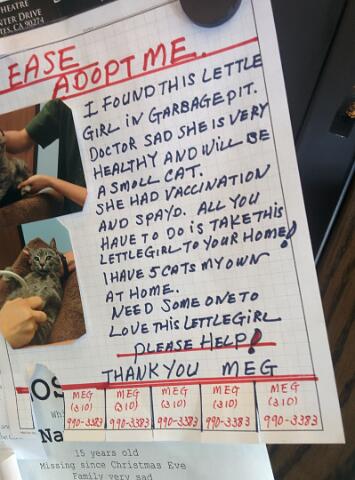 HEATRE
NTER DRIVE
ES, CA 90274
EASE
ADOPT ME..
I FOUND THIS LETTLE
GIRL IN GARBAGE PIT.
DOCTOR SAD SHE IS VERY
HEALTHY AND WILL BE
A SMOLL CAT.
SHE HAD VACCINATION
AND SPAYD. ALL YOU
HAVE TO DO IS TAKE THIS
LETTLE GIRL TO YOUR HOME!
I HAVE 5 CATS MY OWN
AT HOME.
NEED SOME ONE TO
LOVE THIS LETTLE GIRL
PLEASE HELP!
THANK YOU MEG
MEG
(310)
990-3383
MEG
(310)
990-3383
MEG
(310)
990-3383
MEG
(310)
990-3383
MEG
(310)
990-3383
OS
Whi
Na
15 years old
Missing since Christmas Eve
Family very sad